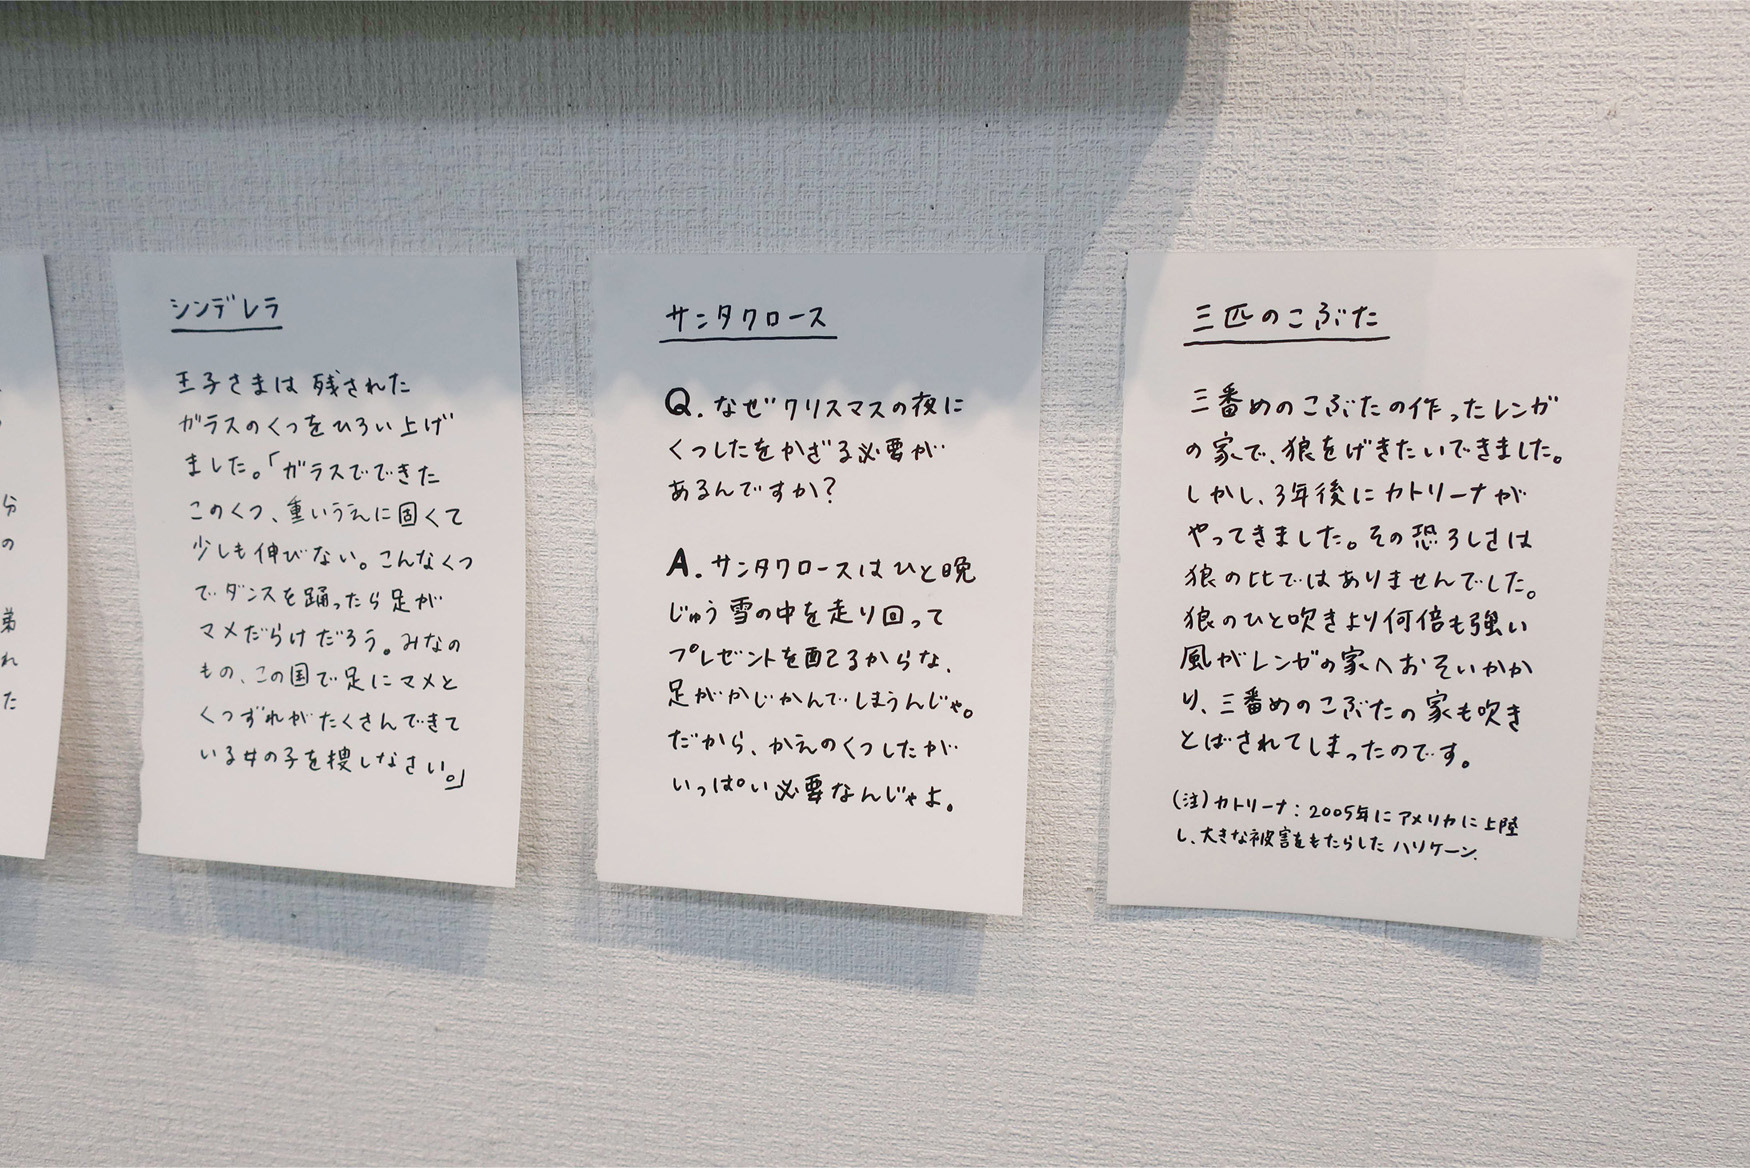 分
の
弟
れ
た
シンデレラ
王子さまは残された
ガラスのくつをひろい上げ
ました。「ガラスでできた
このくつ、重いうえに固くて
少しも伸びない。こんなくつ
でダンスを踊ったら足が
マメだらけだろう。みなの
もの、この国で足にマメと
くつずれがたくさんできて
いる女の子を捜しなさい。」
サンタクロース
Q. なぜクリスマスの夜に
くつしたをかざる必要が
あるんですか？
A. サンタクロースはひと晩
じゅう雪の中を走り回って
プレゼントを配るからな、
足がかじかんでしまうんじゃ。
だから、かえのくつしたが
いっぱい必要なんじゃよ。
三匹のこぶた
三番めのこぶたの作ったレンガ
の家で、狼をげきたいできました。
しかし、3年後にカトリーナが
やってきました。その恐ろしさは
狼の比ではありませんでした。
狼のひと吹きより何倍も強い
風がレンガの家へおそいかか
り、三番めのこぶたの家も吹き
とばされてしまったのです。
(注)カトリーナ：2005年にアメリカに上陸
し、大きな被害をもたらしたハリケーン.